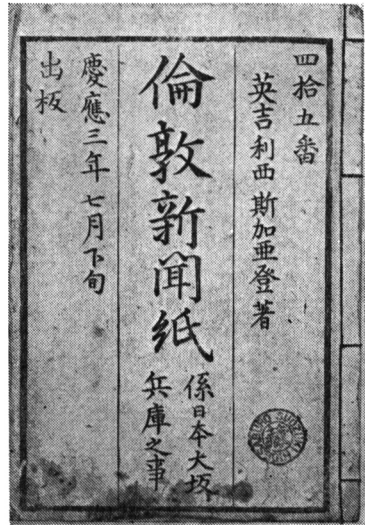 四拾五番
英吉利西斯加亜登著
倫敦新聞紙
係日本大坂
兵庫之事
慶應三年七月下旬
出板